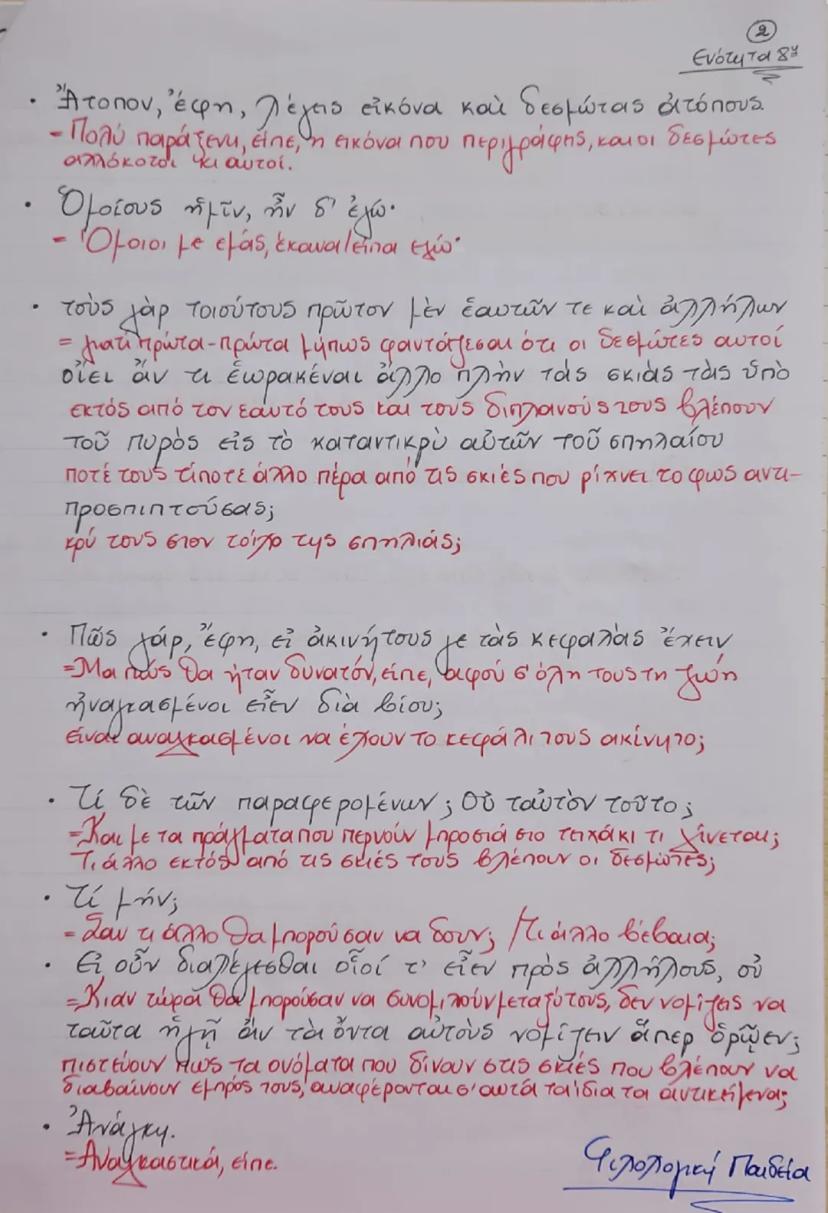 2
Ενότητα 8η
· Ἄτοπον, ἔφη, λέγεις εἰκόνα καὶ δεσμώτας ἀτόπους.
- Πολύ παράξενη, είπε, η εικόνα που περιγράφης, και οι δεσμώτες
αλλόκοτοι κι αυτοί.
· Ὁμοίους ἡμῖν, ἦν δ' ἐγώ·
- Όμοιοι με εμάς, έκανα/είπα εγώ·
· τοὺς γὰρ τοιούτους πρῶτον μὲν ἑαυτῶν τε καὶ ἀλλήλων
= γιατί πρώτα-πρώτα μήπως φαντάζεσαι ότι οι δεσμώτες αυτοί
οἴει ἄν τι ἑωρακέναι ἄλλο πλὴν τὰς σκιὰς τὰς ὑπὸ
εκτός από τον εαυτό τους και τους διπλανούς τους βλέπουν
τοῦ πυρὸς εἰς τὸ καταντικρὺ αὐτῶν τοῦ σπηλαίου
ποτέ τους τίποτε άλλο πέρα από τις σκιές που ρίχνει το φως αντι-
προσπιπτούσας;
κρύ τους στον τοίχο της σπηλιάς;
· Πῶς γάρ, ἔφη, εἰ ἀκινήτους γε τὰς κεφαλὰς ἔχειν
=Μα πώς θα ήταν δυνατόν, είπε, αφού σ' όλη τους τη ζωή
ἠναγκασμένοι εἶεν διὰ βίου;
είναι αναγκασμένοι να έχουν το κεφάλι τους ακίνητο;
· Τί δὲ τῶν παραφερομένων; Οὐ ταὐτὸν τοῦτο;
=Και με τα πράγματα που περνούν μπροστά στο τειχάκι τι γίνεται;
Τι άλλο εκτός από τις σκιές τους βλέπουν οι δεσμώτες;
· Τί μήν;
= Σαν τι άλλο θα μπορούσαν να δουν; /Τι άλλο βέβαια;
· Εἰ οὖν διαλέγεσθαι οἷοί τ' εἶεν πρὸς ἀλλήλους, οὐ
=Κι αν τώρα θα μπορούσαν να συνομιλούν μεταξύ τους, δεν νομίζεις να
ταῦτα ἡγῇ ἂν τὰ ὄντα αὐτοὺς νομίζειν ἅπερ ὁρῷεν;
πιστεύουν πως τα ονόματα που δίνουν στις σκιές που βλέπουν να
διαβαίνουν εμπρός τους, αναφέρονται σ' αυτά τα ίδια τα αντικείμενα;
· Ἀνάγκη.
=Αναγκαστικά, είπε.
Φιλολογική Παιδεία